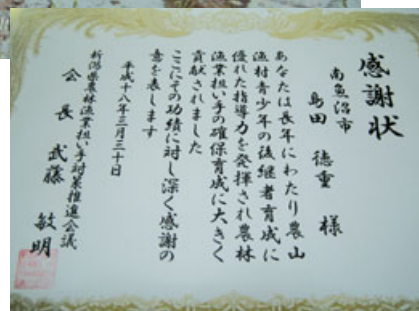 感謝状
南魚沼市
島田徳重様
あなたは長年にわたり農山
漁村青少年の後継者育成に
優れた指導力を発揮され農林
漁業担い手の確保育成に大きく
貢献されました
ここにその功績に対し深く感謝の
意を表します
平成十八年三月三十日
新潟県農林漁業担い手対策推進会議
会長武藤敏明